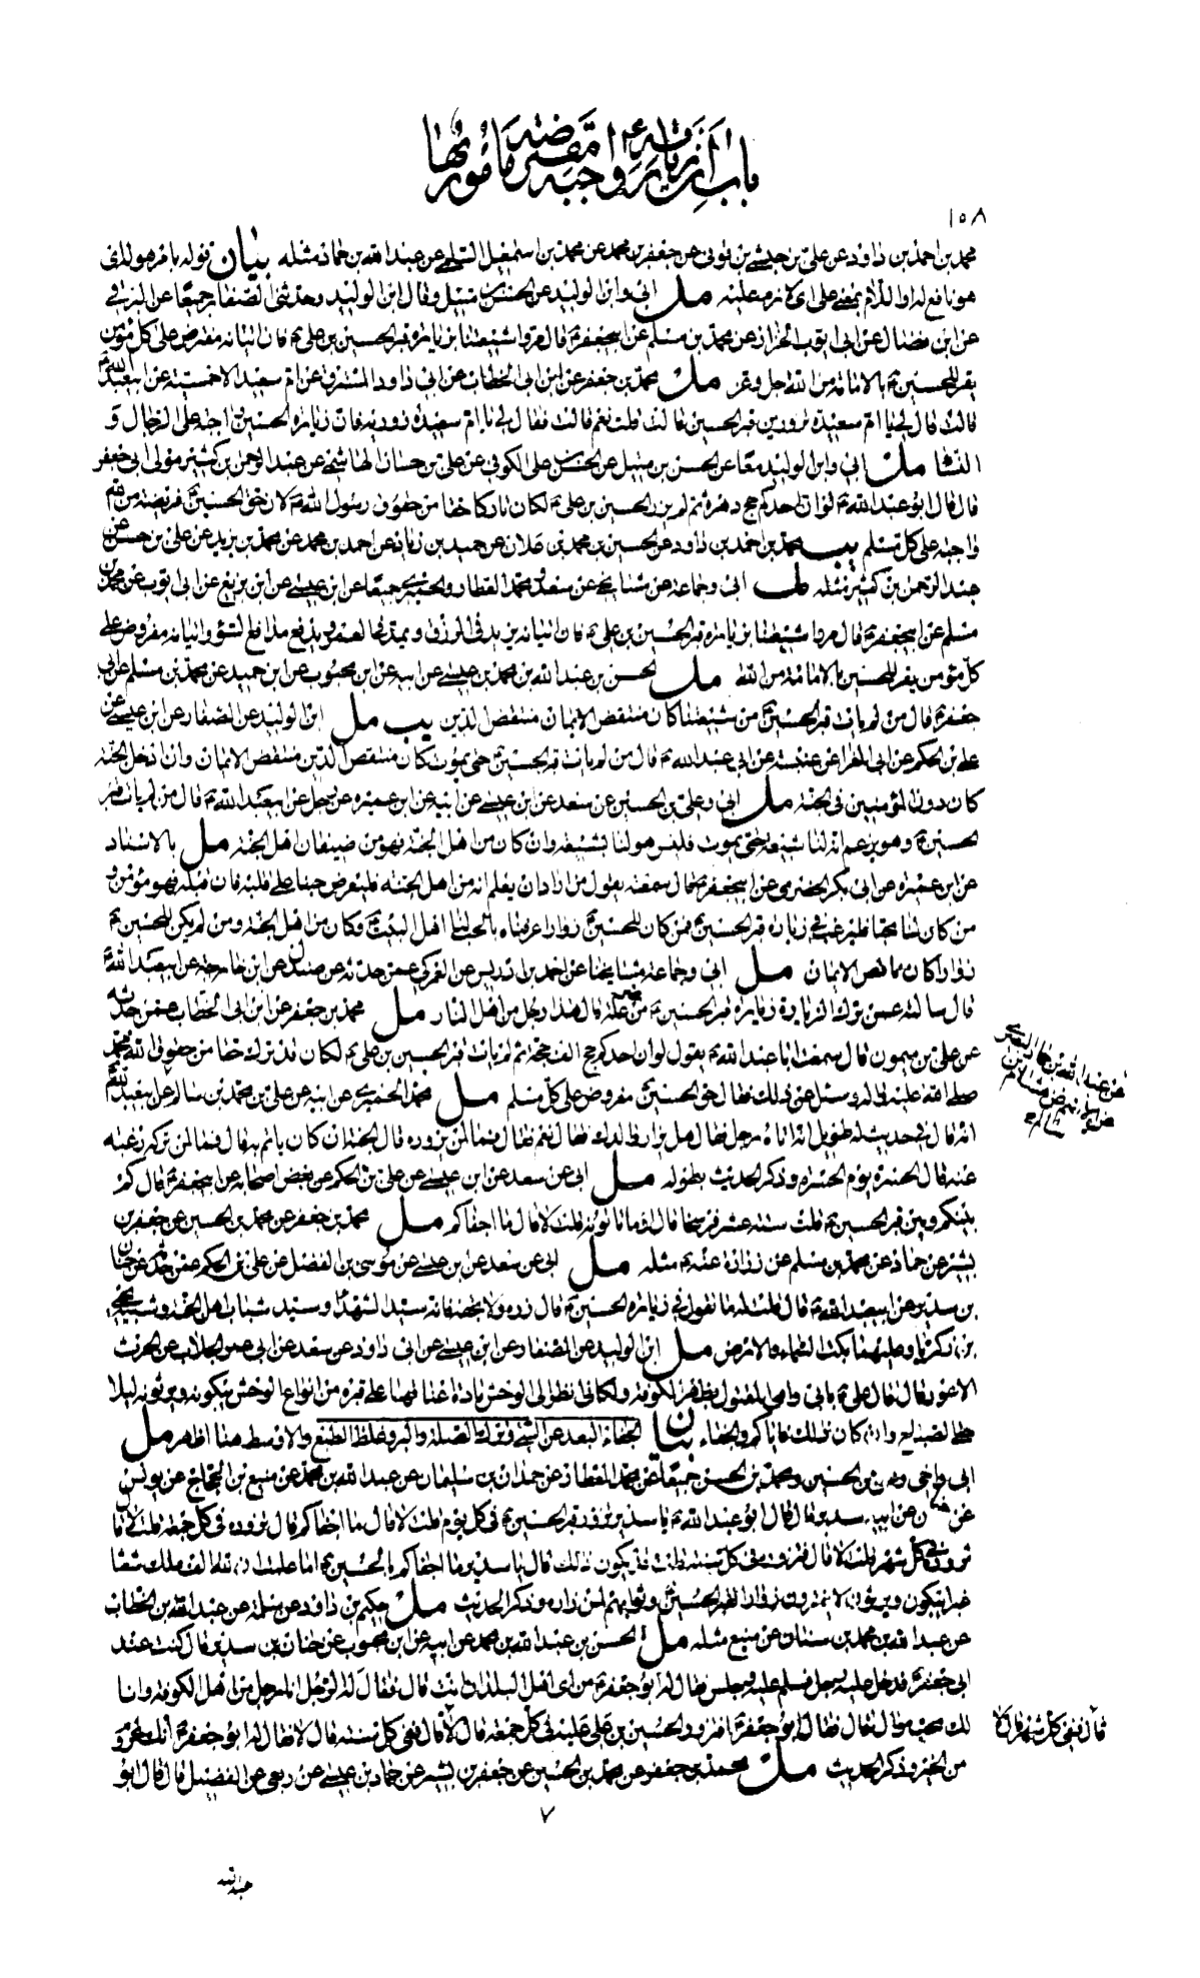 باب أن زيارته ع واجبة مفترضة مأمور بها
١٥٨
محمد بن احمد بن داود عن علي بن حبشي بن قوني عن جعفر بن محمد عن محمد بن اسمعيل السلمي عن عبد الله بن حماد مثله بيان قوله
عليه مل ابي وابن الوليد عن الحسن بن متيل وقال ابن الوليد وحدثني الصفار جميعا عن البرقي
عن ابن فضال عن ابي ايوب الخزاز عن محمد بن مسلم عن ابيجعفر ع قال مروا شيعتنا بزيارة قبر الحسين بن علي ع فان اتيانه مفترض على كل مؤمن
يقر للحسين ع بالامامة من الله جل وعز مل محمد بن جعفر عن ابن ابي الخطاب عن ابي داود المسترق عن ام سعيد الاحمسية عن ابيعبد الله ع
قالت قال لي يا ام سعيدة تزورين قبر الحسين قالت قلت نعم قالت فقال لي يا ام سعيدة زوريه فان زيارة الحسين واجبة على الرجال و
النساء مل ابي وابن الوليد معا عن الحسن بن متيل عن الحسن بن علي الكوفي عن علي بن حسان الهاشمي عن عبد الرحمن بن كثير مولى ابي جعفر
قال قال ابو عبد الله ع لو ان احدكم حج دهره ثم لم يزر الحسين بن علي ع لكان تاركا حقا من حقوق رسول الله ص لان حق الحسين ع فريضة من الله
واجبة على كل مسلم يب محمد بن احمد بن داود عن الحسين بن محمد بن علان عن حميد بن زياد عن احمد بن محمد عن محمد بن يزيد عن علي بن حسن عن
عبد الرحمن بن كثير مثله مل ابي وجماعة مشايخي عن سعد ومحمد العطار والحميري جميعا عن ابن عيسى عن ابن بزيع عن ابي ايوب عن محمد بن
مسلم عن ابيجعفر ع قال مروا شيعتنا بزيارة قبر الحسين بن علي ع فان اتيانه يزيد في الرزق ويمد في العمر ويدفع مدافع السوء واتيانه مفروض على
كل مؤمن يقر للحسين بالامامة من الله مل الحسن بن عبد الله بن محمد بن عيسى عن ابيه عن ابن محبوب عن ابن حميد عن محمد بن مسلم عن ابي
جعفر ع قال من لم يات قبر الحسين ع من شيعتنا كان منتقص الايمان منتقص الدين يب مل ابن الوليد عن الصفار عن ابن عيسى عن
علي بن الحكم عن ابي المغرا عن عنبسة عن ابي عبد الله ع قال من لم يات قبر الحسين حتى يموت كان منتقص الدين منتقص الايمان وان دخل الجنة
كان دون المؤمنين في الجنة مل ابي وعلي بن الحسين عن سعد عن ابن عيسى عن ابيه عن ابن عميرة عن رجل عن ابيعبد الله ع قال من لم يات قبر
الحسين ع وهو يزعم انه لنا شيعة حتى يموت فليس هو لنا بشيعة وان كان من اهل الجنة فهو من ضيفان اهل الجنة مل بالاسناد
عن ابن عميرة عن ابي بكر الحضرمي عن ابيجعفر ع قال سمعته يقول من اراد ان يعلم انه من اهل الجنة فليعرض حبنا على قلبه فان قبله فهو مؤمن و
من كان لنا محبا فليرغب في زيارة قبر الحسين ع فمن كان للحسين ع زوارا عرفناه بالحب لنا اهل البيت ع وكان من اهل الجنة ومن لم يكن للحسين ع
زوارا كان ناقص الايمان مل ابي وجماعة مشايخنا عن احمد بن ادريس عن العمركي عمن حدثه عن صندل عن ابن خارجة عن ابيعبد الله ع
قال سالته عمن ترك الزيارة زيارة قبر الحسين ع من غير علة قال هذا رجل من اهل النار مل محمد بن جعفر عن ابن ابي الخطاب عمن حدثه
عن علي بن ميمون قال سمعت ابا عبد الله ع يقول لو ان احدكم حج الف حجة ثم لم يات قبر الحسين بن علي ع لكان قد ترك حقا من حقوق الله
وسئل عن ذلك فقال حق الحسين ع مفروض على كل مسلم مل محمد الحميري عن ابيه عن علي بن محمد بن سالم
انه قال في حديث له طويل انه اتاه رجل فقال هل يزار والدك فقال نعم فقال فما لمن يزوره قال الجنة ان كان ياتم به قال فما لمن تركه رغبة
عنه قال الحسرة يوم الحسرة وذكر الحديث بطوله مل ابي عن سعد عن ابن عيسى عن علي بن الحكم عن بعض اصحابه عن ابيجعفر ع قال كم
بينكم وبين قبر الحسين ع قلت ستة عشر فرسخا قال اوما تاتونه قلت لا قال ما اجفاكم مل محمد بن جعفر عن محمد بن الحسين عن جعفر بن
بشير عن حماد عن محمد بن مسلم عن زرارة عنه ع مثله مل ابي عن سعد عن ابن عيسى عن موسى بن الفضل عن علي بن الحكم عمن حدثه عن حنان
بن سدير عن ابيعبد الله ع قال قلت له ما تقول في زيارة الحسين ع قال زره ولا تجفه فانه سيد الشهداء وسيد شباب اهل الجنة وشبيه يحيى
بن زكريا وعليهما بكت السماء والارض مل ابن الوليد عن الصفار عن ابن عيسى عن ابي داود عن سعد عن ابي عمر الجلاب عن الحرث
الاعور قال قال علي ع بابي وامي المقتول بظهر الكوفة ولكاني انظر الى الوحش مادة اعناقها على قبره من انواع الوحش يبكونه ويرثونه ليلا
حتى الصباح واذا كان ذلك فاياكم والجفاء بيان الجفاء البعد عن الشيء وترك الصلة والبر وغلظ الطبع والاوسط هنا اظهر مل
ابي واخي وعلي بن الحسين ومحمد بن الحسن جميعا عن محمد العطار عن حمدان بن سليمان عن عبد الله بن محمد عن منيع بن الحجاج عن يونس
عن حنان عن ابيه سدير قال قال ابو عبد الله ع يا سدير تزور قبر الحسين ع في كل يوم قلت لا قال ما اجفاكم قال تزوره في كل جمعة قلت لا قال
تزوره في كل شهر قلت لا قال فتزوره في كل سنة قلت قد يكون ذلك قال يا سدير ما اجفاكم بالحسين ع اما علمت ان لله الف ملك شعثا
غبرا يبكون ويرثون لا يفترون زوارا لقبر الحسين ع وثوابهم لمن زاره وذكر الحديث مل حكيم بن داود عن سلمة عن عبد الله بن الخطاب
عن عبد الله بن محمد بن سنان عن منيع مثله مل الحسن بن عبد الله بن محمد عن ابيه عن ابن محبوب عن حنان بن سدير قال كنت عند
ابي جعفر ع فدخل عليه رجل فسلم عليه وجلس فقال له ابو جعفر ع من اي اهل البلدان انت قال فقال له الرجل انا رجل من اهل الكوفة وانا
لك محب موال قال فقال له ابو جعفر ع افتزور الحسين بن علي ع في كل جمعة قال لا قال ففي كل سنة قال لا فقال له ابو جعفر ع انك لمحروم
قال ففي كل شهر قال لا
من الخير وذكر الحديث مل محمد بن جعفر عن محمد بن الحسين عن جعفر بن بشير عن حماد بن عيسى عن ربعي عن الفضيل قال قال ابو
٧
عبد الله